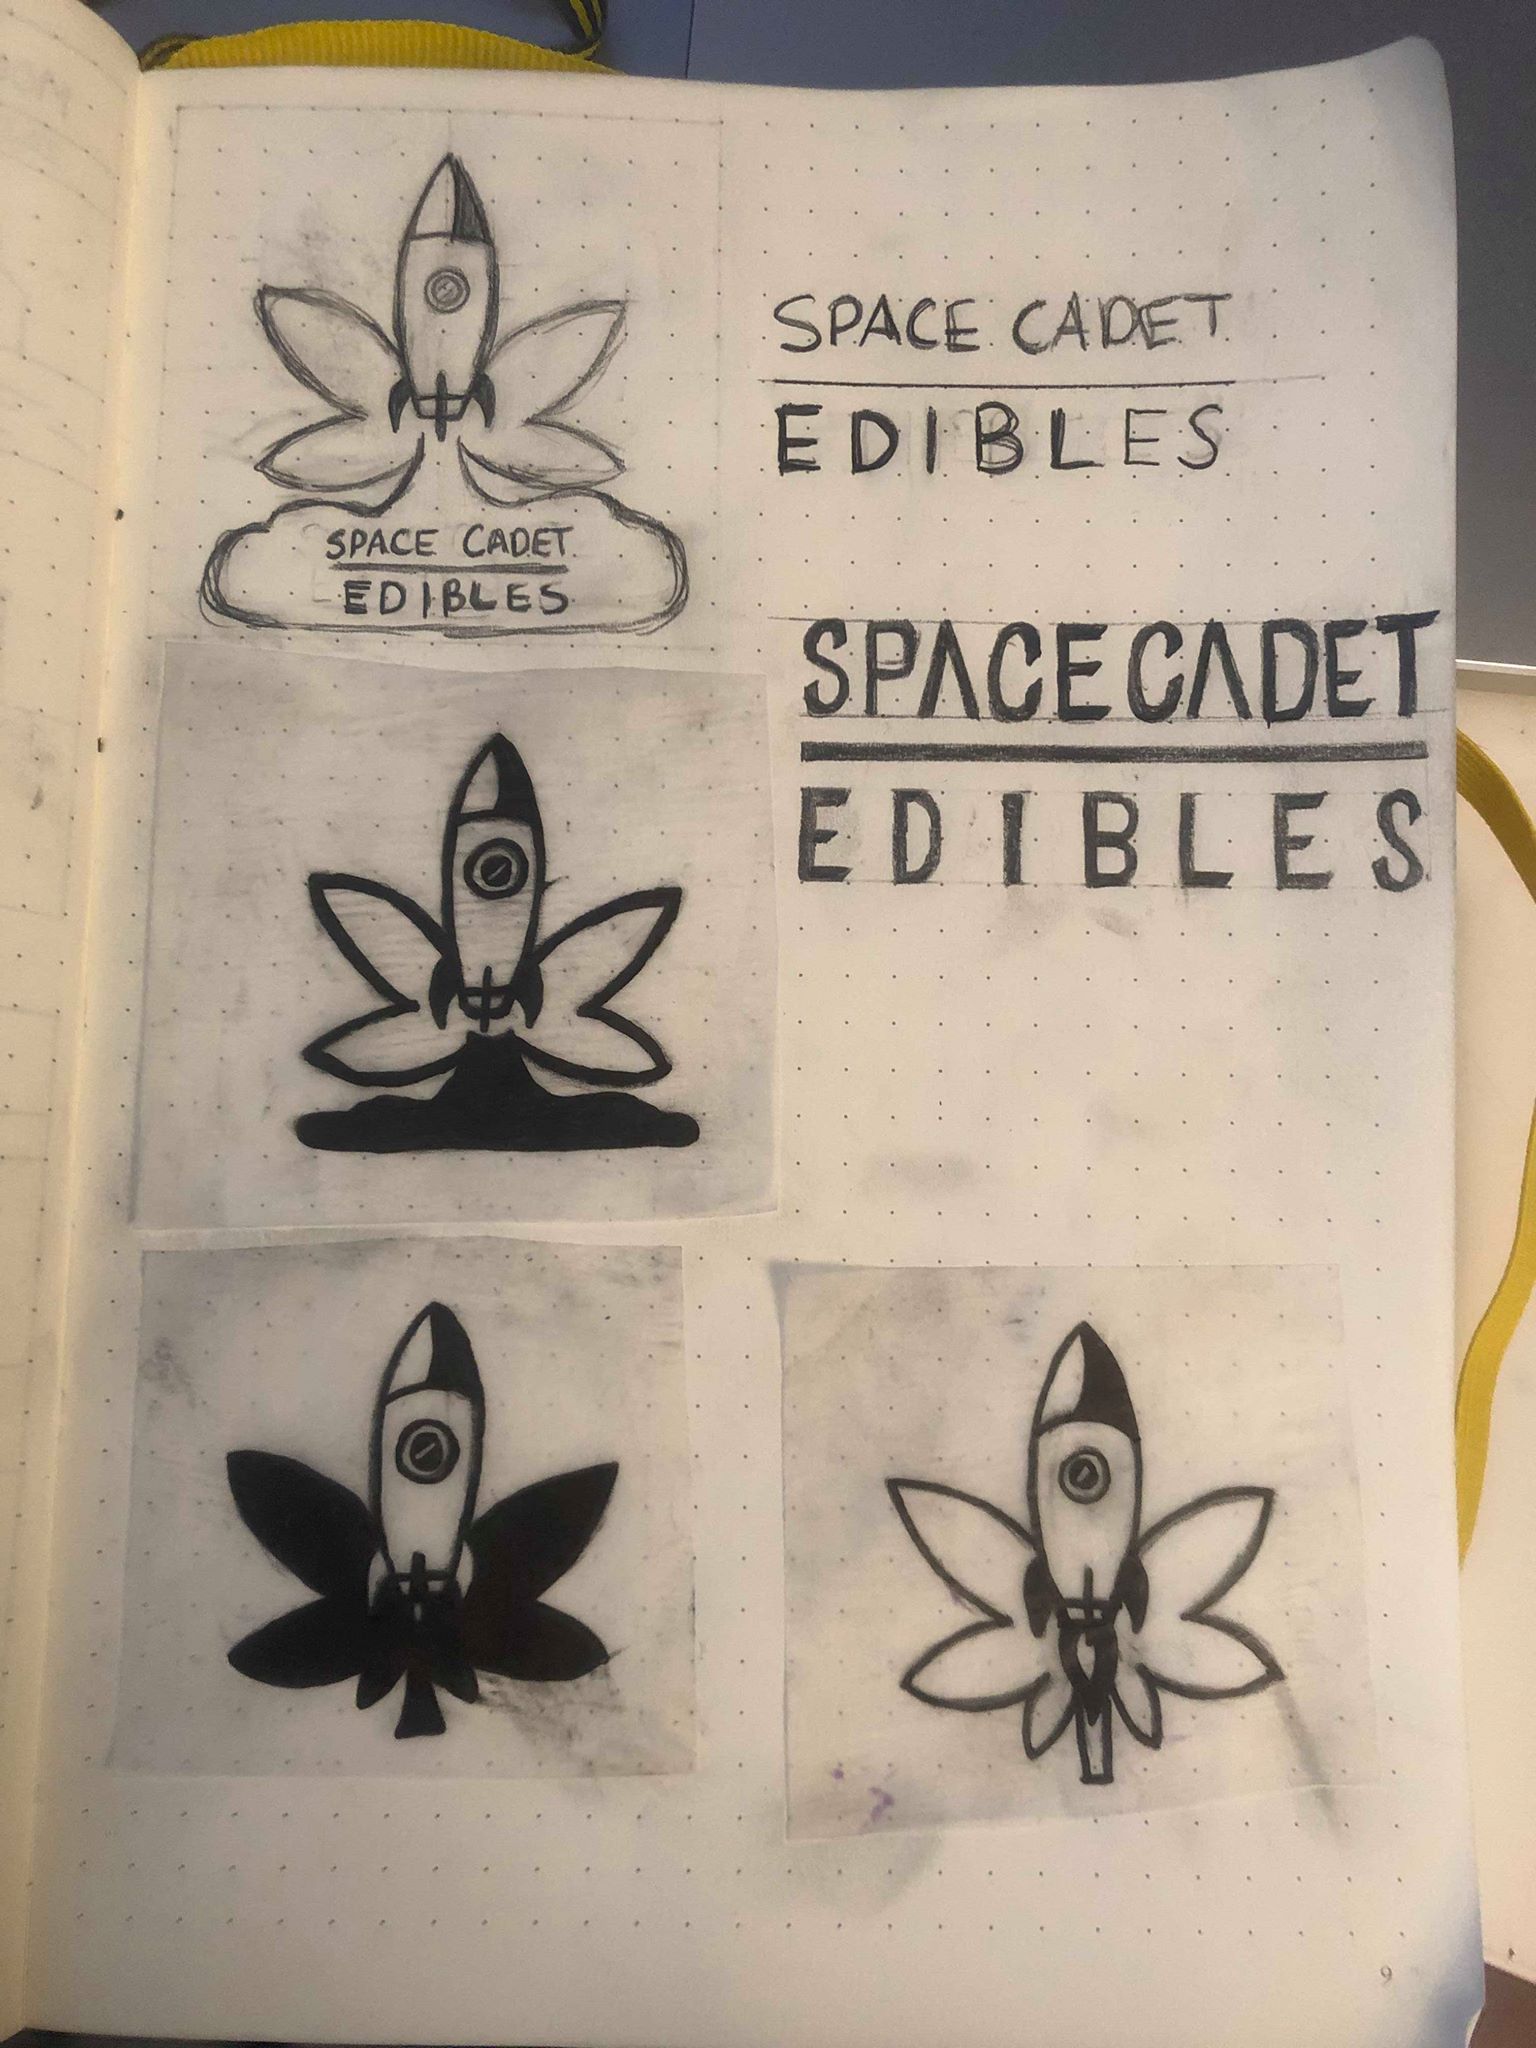 SPACE CADET
EDIBLES
SPACE CADET
EDIBLES
SPACECADET
EDIBLES
9